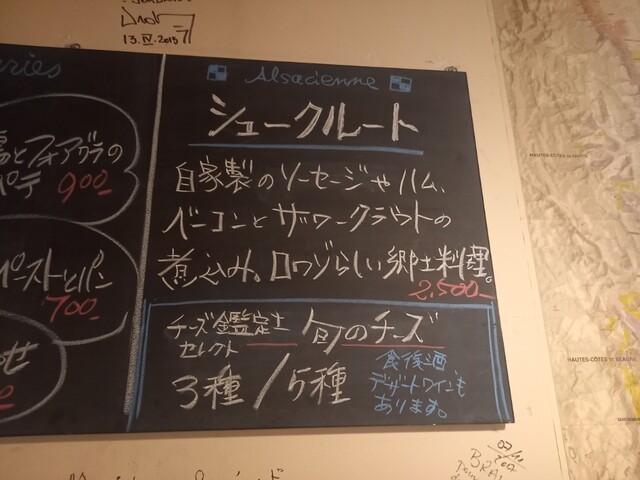 13.IV.2015
Alsacienne
シュークルート
自家製のソーセージやハム、
ベーコンとザワークラウトの
煮込み。ロワゾらしい郷土料理。
2,500-
チーズ鑑定士
セレクト
旬のチーズ
3種/5種
食後酒
デザートワインも
あります。
とフォアグラの
パテ 900-
ペーストとパン
700-
せ
HAUTES-CÔTES de NUITS
HAUTES-CÔTES de BEAUNE